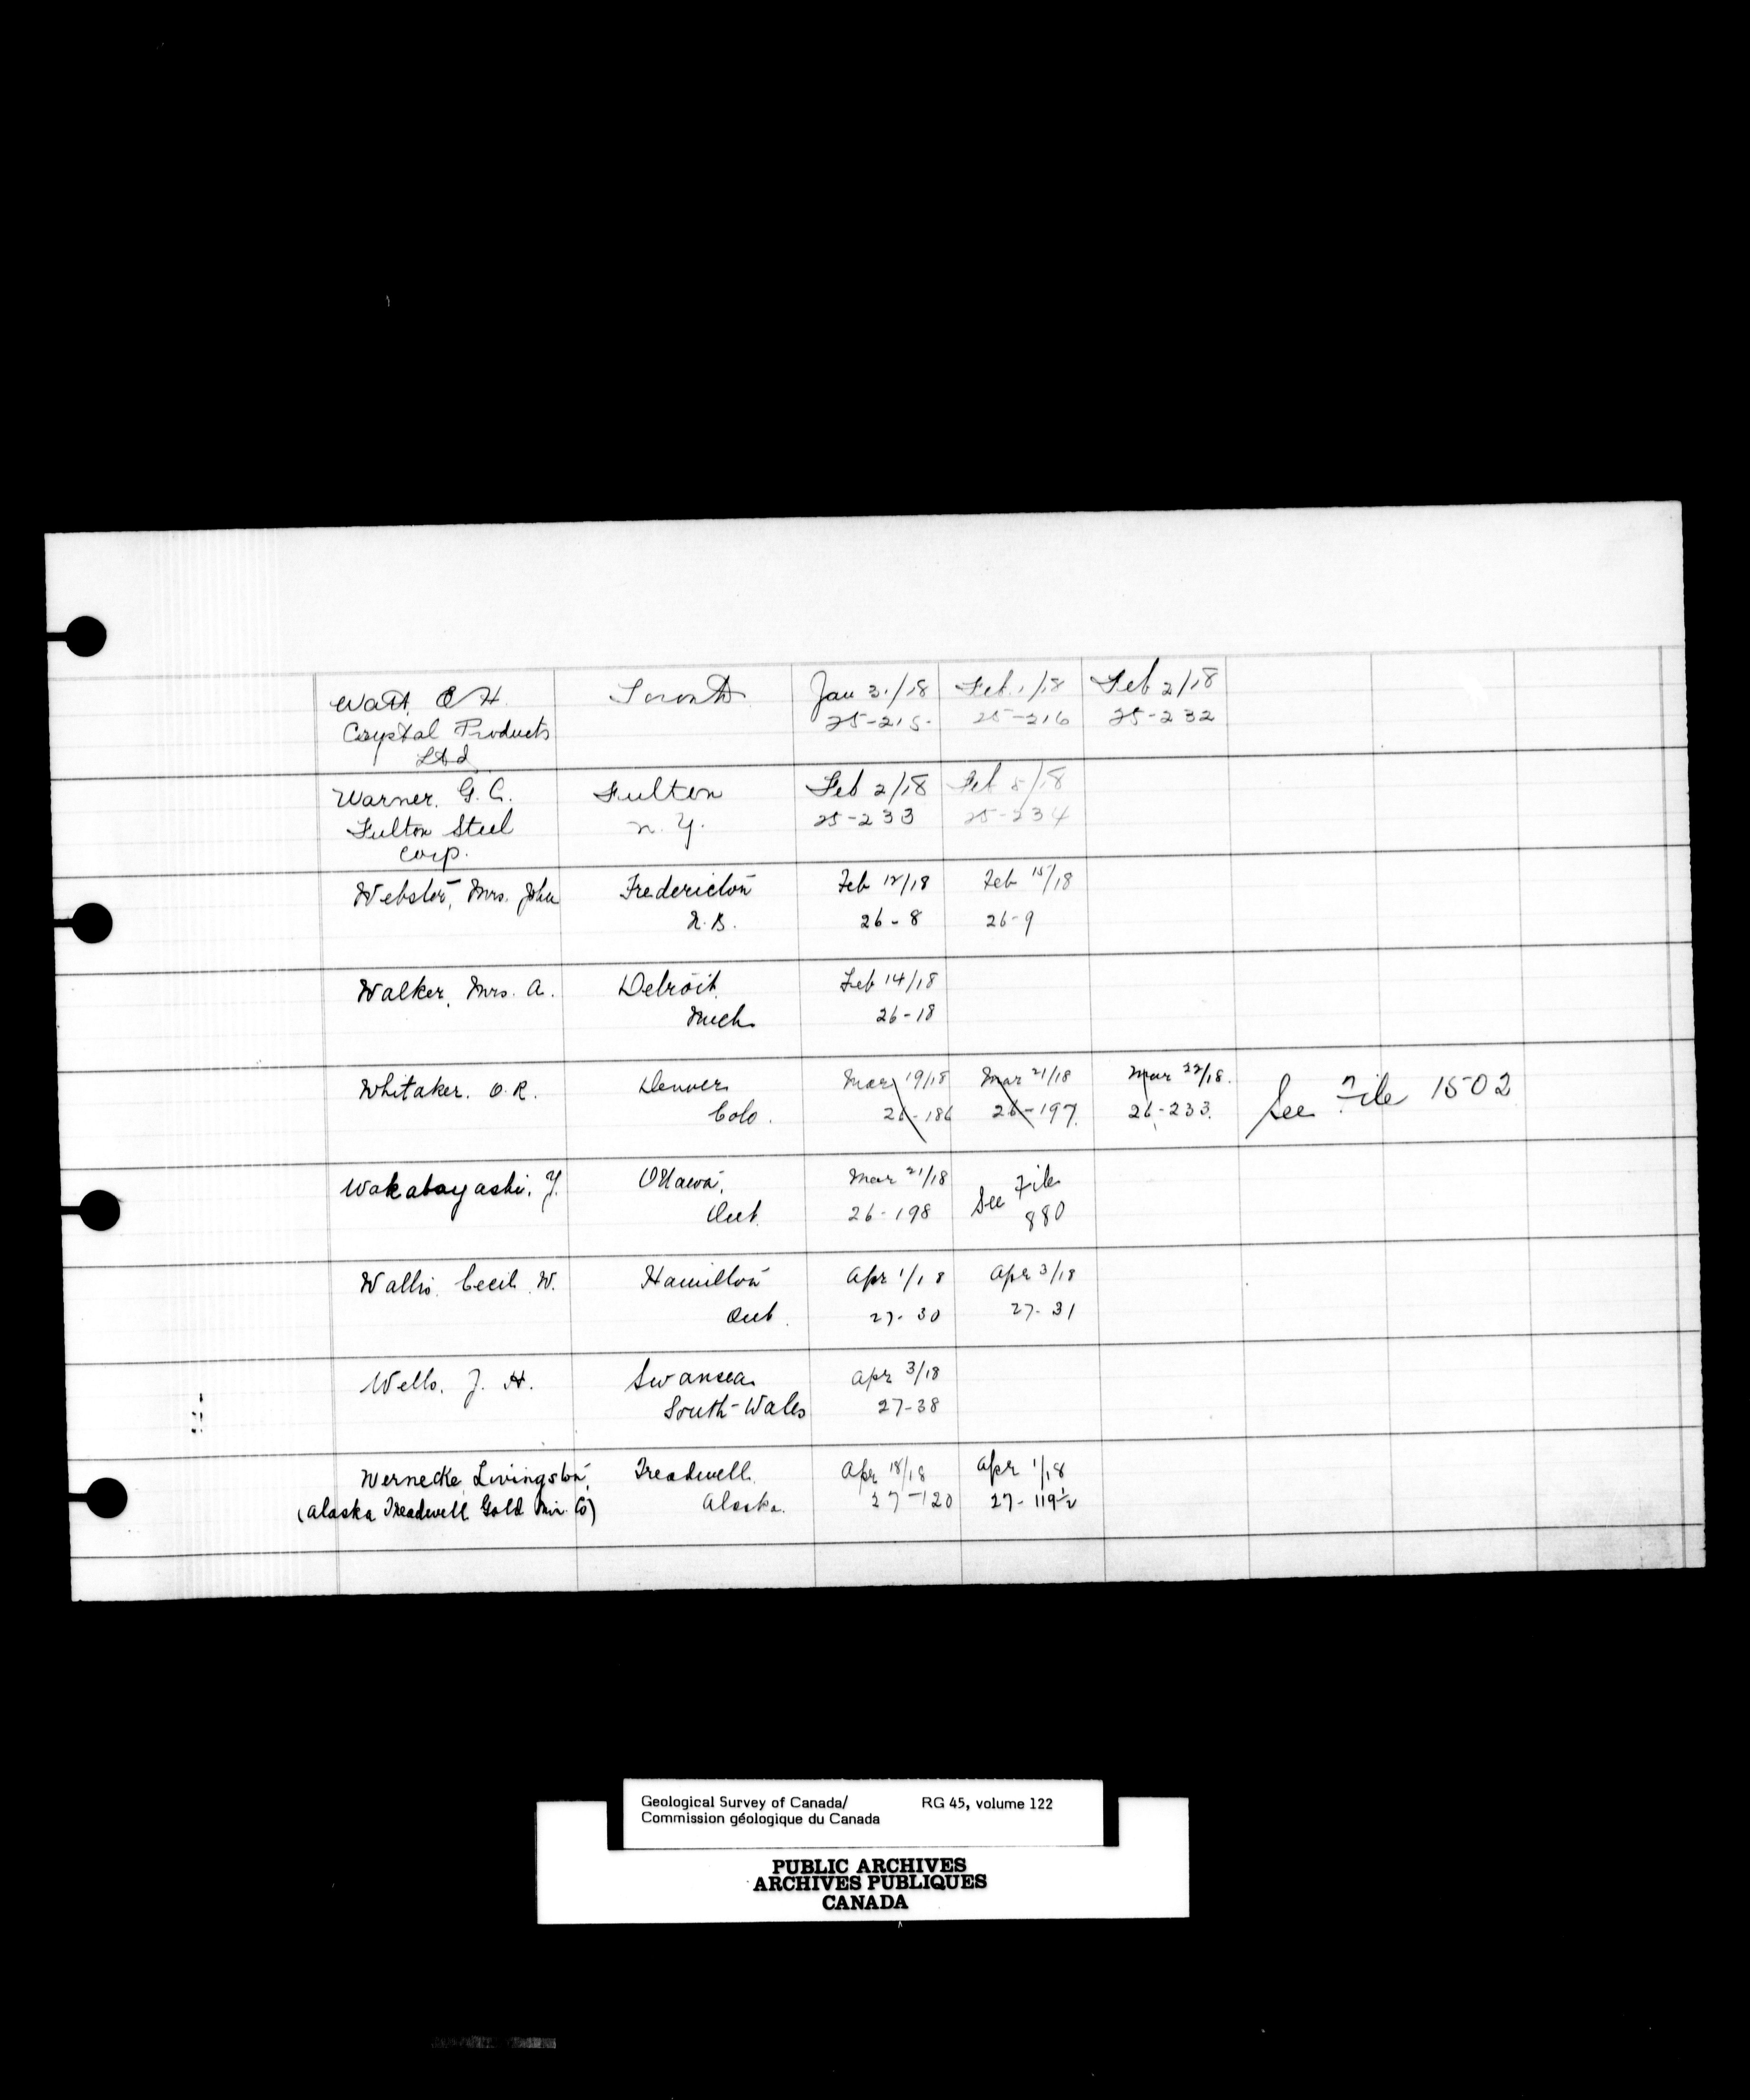 Watt, O H. Toronto Jan 31/18 Feb 1/18 Feb 2/18
Crystal Products 25-215- 25-216 25-232
Ltd
Warner, G. C. Fulton Feb 2/18 Feb 5/18
Fulton Steel N. Y. 25-233 25-234
Corp.
Webster, Mrs. John Fredericton Feb 12/18 Feb 15/18
N.B. 26-8 26-9
Walker, Mrs. A. Detroit Feb 14/18
Mich 26-18
Whitaker. O.R. Denver Mar 19/18 Mar 21/18 Mar 22/18. See File 1502
Colo. 26-186 26-197. 26-233.
Wakabayashi, Y. Ottawa, Mar 21/18 See File
Ont. 26-198 880
Wallis, Cecil W. Hamilton Apr 1/18 Apr 3/18
Ont. 27-30 27-31
Wells, J. H. Swansea Apr 3/18
South-Wales 27-38
Wernecke, Livingston, Treadwell, Apr 18/18 Apr 1/18
(Alaska Treadwell Gold Min. Co) Alaska. 27-120 27-119½
Geological Survey of Canada/ RG 45, volume 122
Commission géologique du Canada
PUBLIC ARCHIVES
ARCHIVES PUBLIQUES
CANADA